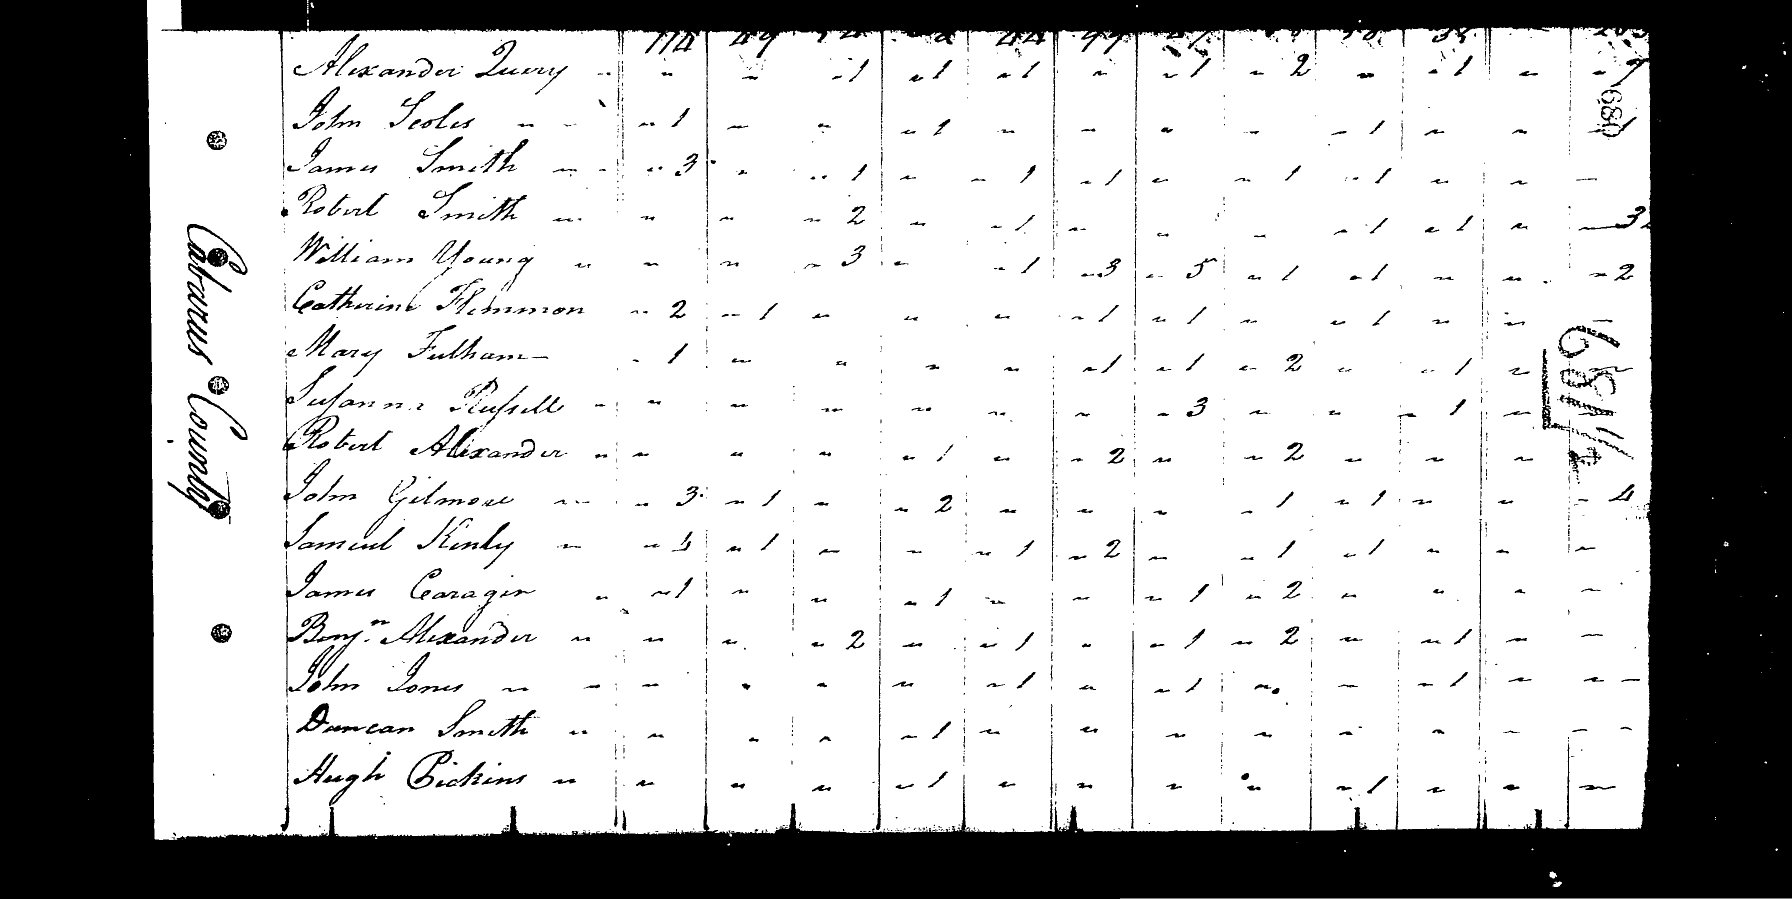 114 49
Alexander Query " " " " 1 " 1 " 1 " " 1 " 2 " " 1 " " 7
John Scoles " " " 1 " " " 1 " " " " " 1 " "
James Smith " " " 3 " " 1 " " 1 " 1 " " 1 " 1 " " —
Robert Smith " " " " 2 " " 1 " " " " 1 " 1 " — 3
William Young " " " " 3 " " 1 " 3 " 5 " 1 " 1 " " " 2
Catherine Flemmon " 2 " 1 " " " " 1 " 1 " " 1 " " —
Mary Fulham — " 1 " " " " " 1 " 1 " 2 " " 1 " "
Susanna Russell " " " " " " " " 3 " " " 1 "
Robert Alexander " " " " " 1 " " 2 " " 2 " " "
John Gilmore " " " 3 " 1 " " 2 " " " " 1 " 1 " " " 4
Samuel Kenly " " 4 " 1 " " " 1 " 2 " " 1 " 1 " " "
James Caragin " " 1 " " " 1 " " " 1 " 2 " " " "
Benjn. Alexander " " " " 2 " " 1 " " 1 " 2 " " 1 " —
John Jones " " " " " " " 1 " " 1 " " " 1 " " —
Duncan Smith " " " " " 1 " " " " " " " " —
Hugh Pickins " " " " " 1 " " " " " 1 " " "
Cabarus County
680